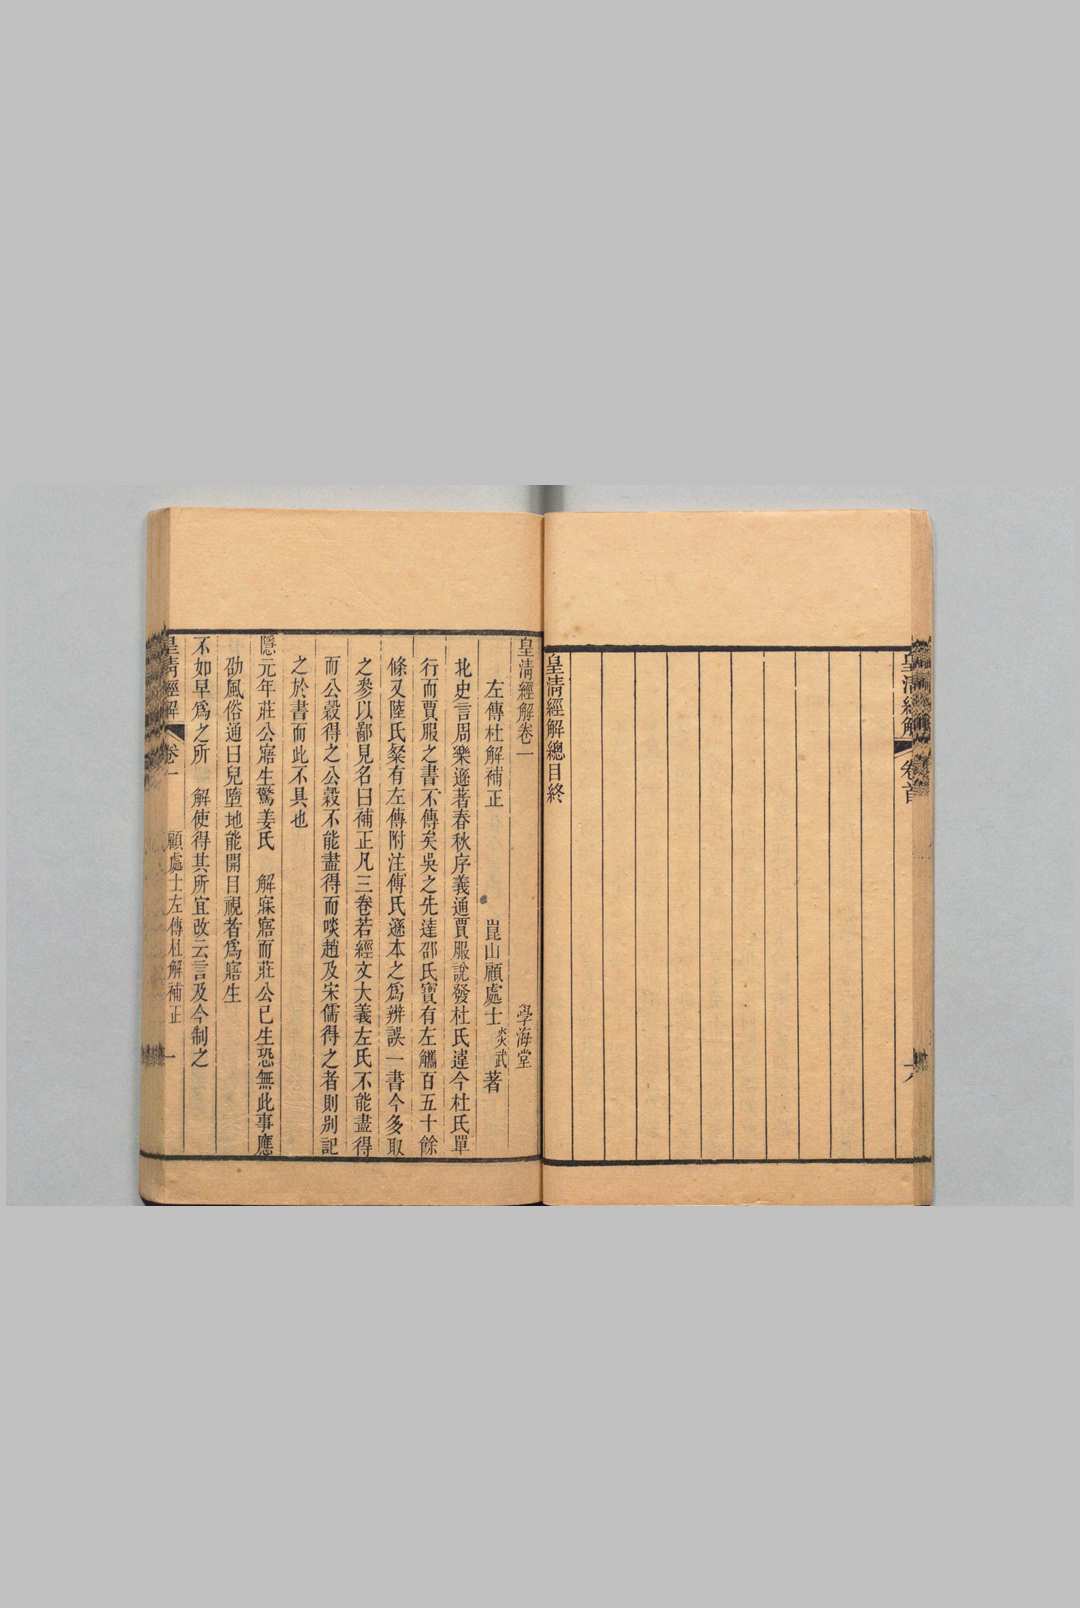 皇清經解
卷首
皇清經解總目終
皇清經解卷一
學海堂
左傳杜解補正
崑山顧處士炎武著
北史言周樂遜著春秋序義通賈服說發杜氏違今杜氏單
行而賈服之書不傳矣吳之先達邵氏寶有左觿百五十餘
條又陸氏粲有左傳附注傅氏遜本之爲辨誤一書今多取
之參以鄙見名曰補正凡三卷若經文大義左氏不能盡得
而公穀得之公穀不能盡得而啖趙及宋儒得之者則別記
之於書而此不具也
隱元年莊公寤生驚姜氏 解寐寤而莊公已生恐無此事應
劭風俗通曰兒墮地能開目視者爲寤生
不如早爲之所 解使得其所宜改云言及今制之
皇清經解
卷一
顧處士左傳杜解補正
一